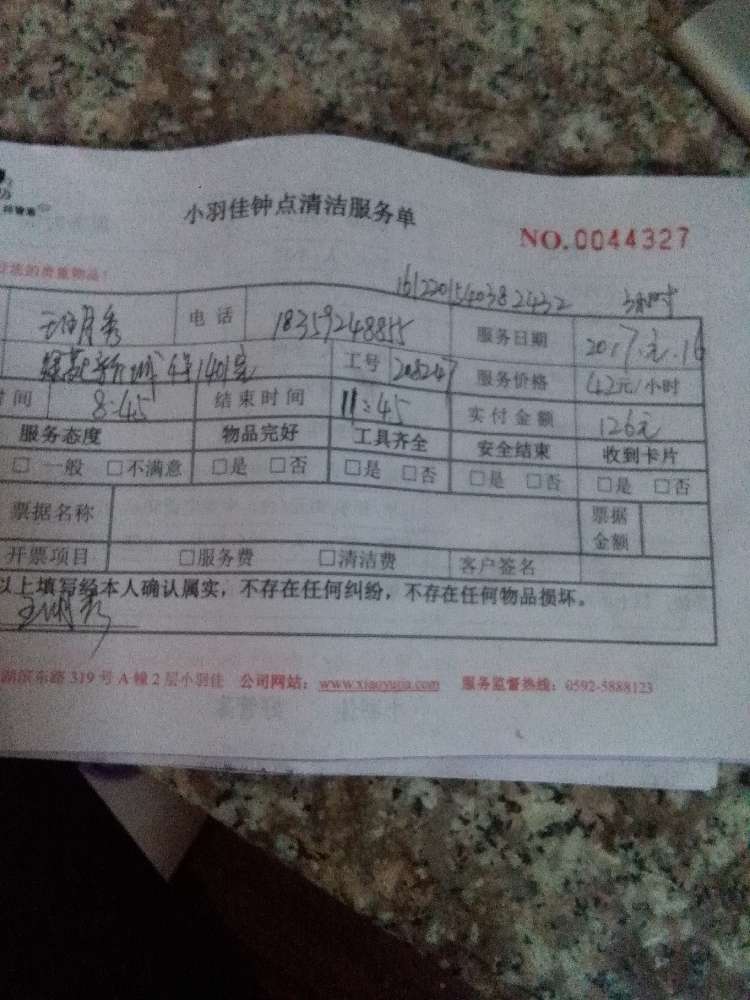 小羽佳钟点清洁服务单
NO.0044327
的贵重物品!
1612201540382432 3小时
电话 18359248855 服务日期 2017.元.16
1401室 工号 208247 服务价格 42元/小时
时间 8:45 结束时间 11:45 实付金额 126元
服务态度 物品完好 工具齐全 安全结束 收到卡片
□ 一般 □不满意 □是 □否 □是 □否 □是 □否 □是 □否
票据名称 票据金额
开票项目 □服务费 □清洁费 客户签名
以上填写经本人确认属实，不存在任何纠纷，不存在任何物品损坏。
湖滨东路319号A幢2层小羽佳 公司网站：www.xiaoyujia.com 服务监督热线：0592-5888123